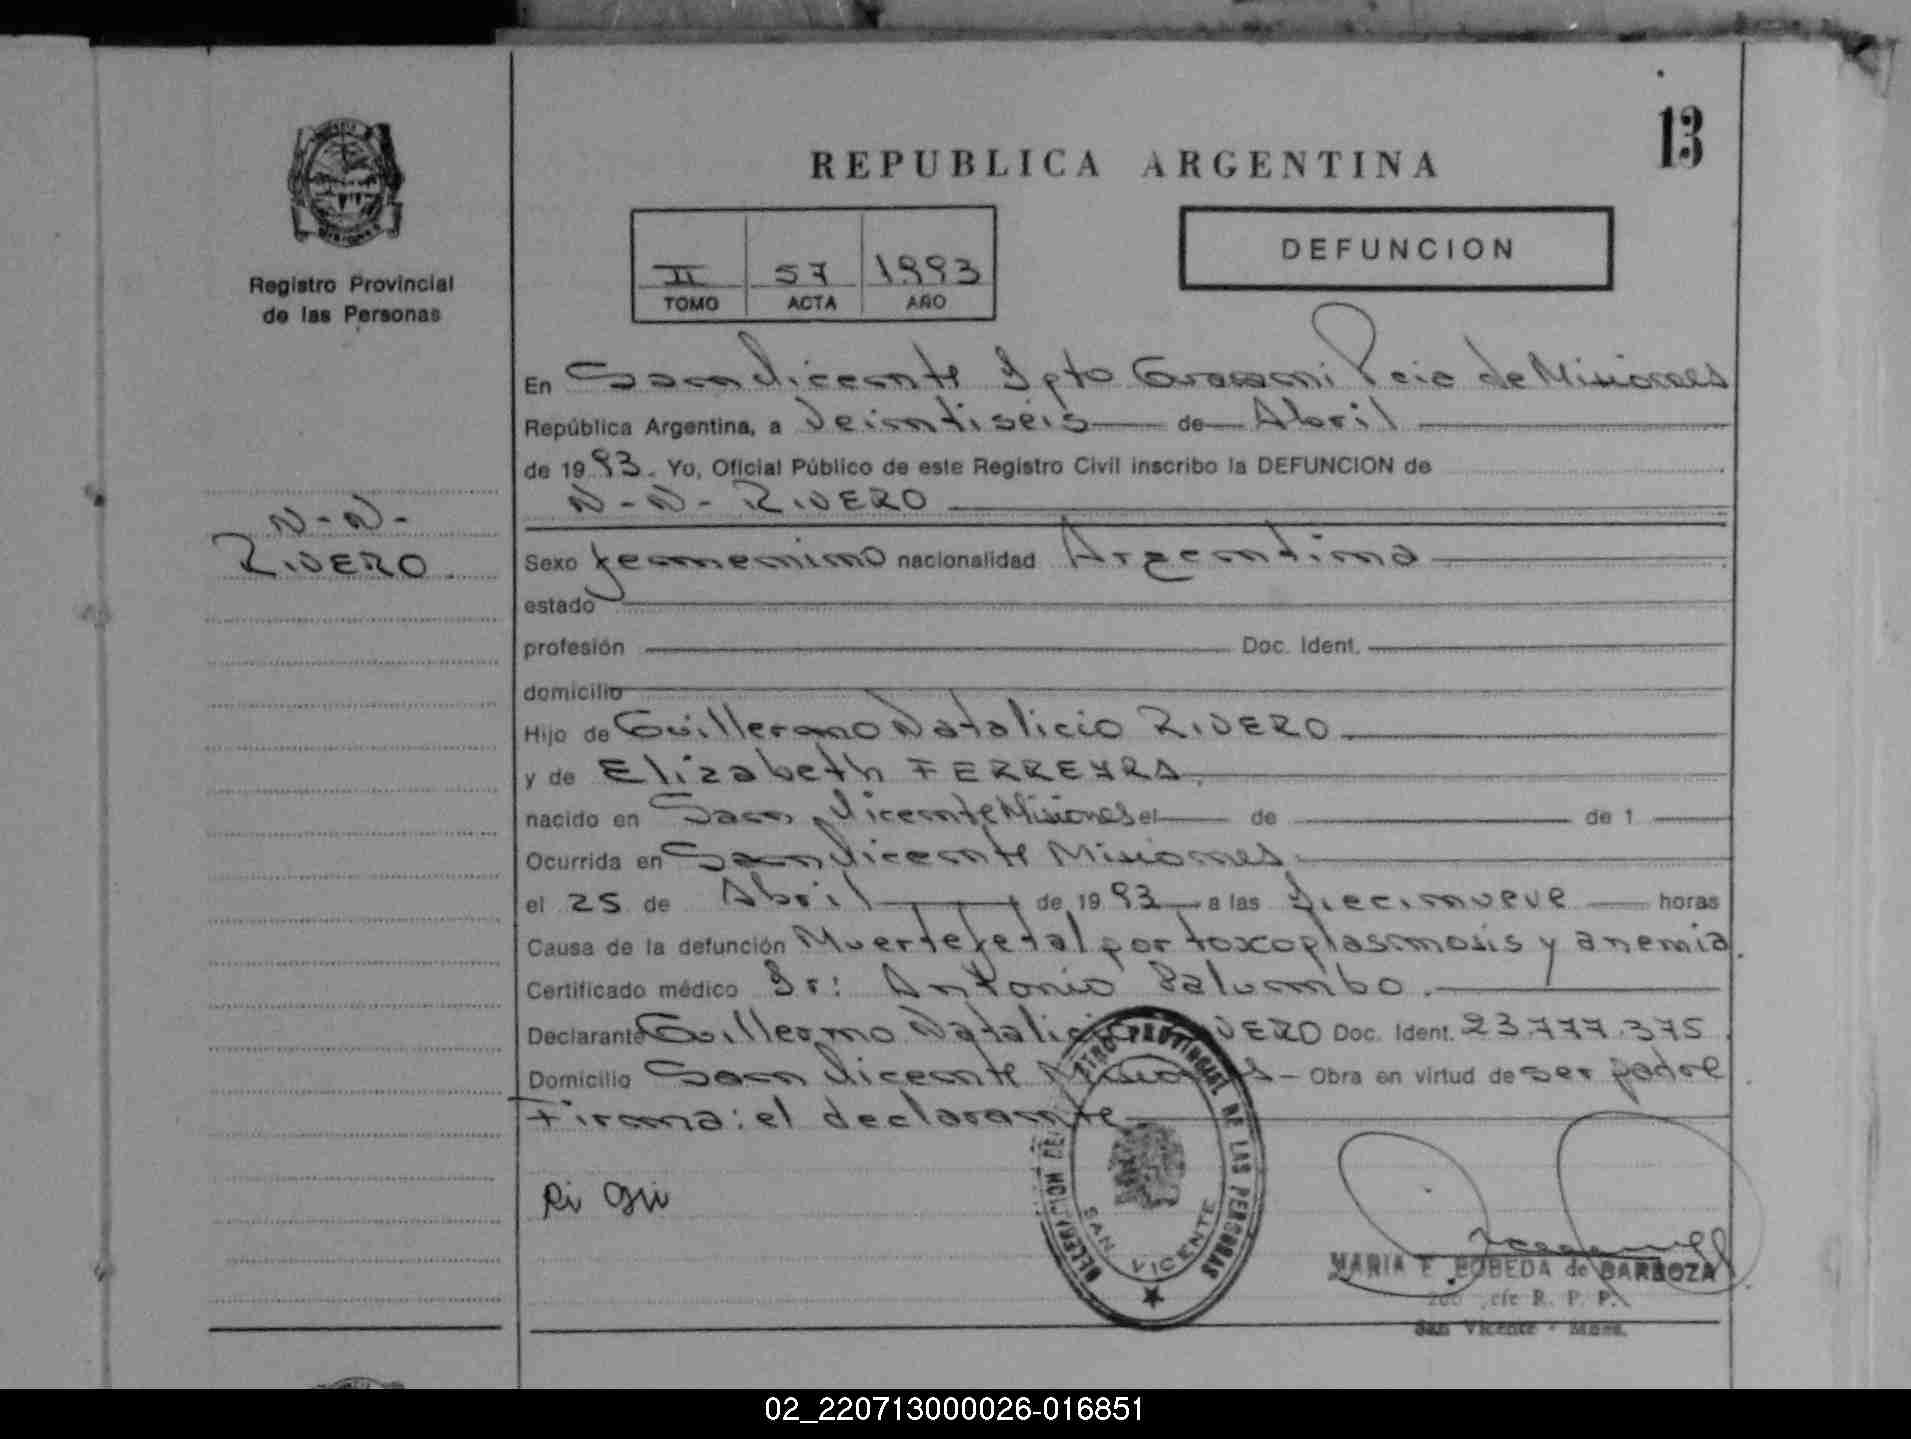 13
REPUBLICA ARGENTINA
DEFUNCION
II 57 1993
TOMO ACTA AÑO
MISIONES
Registro Provincial
de las Personas
N-N-
RIVERO
En San Vicente Dpto Guaraní Pcia de Misiones
República Argentina, a Veintiséis de Abril
de 1993. Yo, Oficial Público de este Registro Civil inscribo la DEFUNCION de
N-N- RIVERO
Sexo femenino nacionalidad Argentina
estado
profesión Doc. Ident.
domicilio
Hijo de Guillermo Natalicio RIVERO
y de Elizabeth FERREYRA
nacido en San Vicente Misiones el de de 1
Ocurrida en San Vicente Misiones
el 25 de Abril de 1993 a las diecinueve horas
Causa de la defunción Muerte fetal por toxoplasmosis y anemia.
Certificado médico Dr: Antonio Palumbo.
Declarante Guillermo Natalicio RIVERO Doc. Ident. 23.777.375
Domicilio San Vicente Misiones - Obra en virtud de ser padre
Firma: el declarante
DELEGACION DEL REGISTRO PROVINCIAL DE LAS PERSONAS
SAN VICENTE
MARIA E. BOBEDA de BARBOZA
R. P. P.
San Vicente - Mnes.
02_220713000026-016851